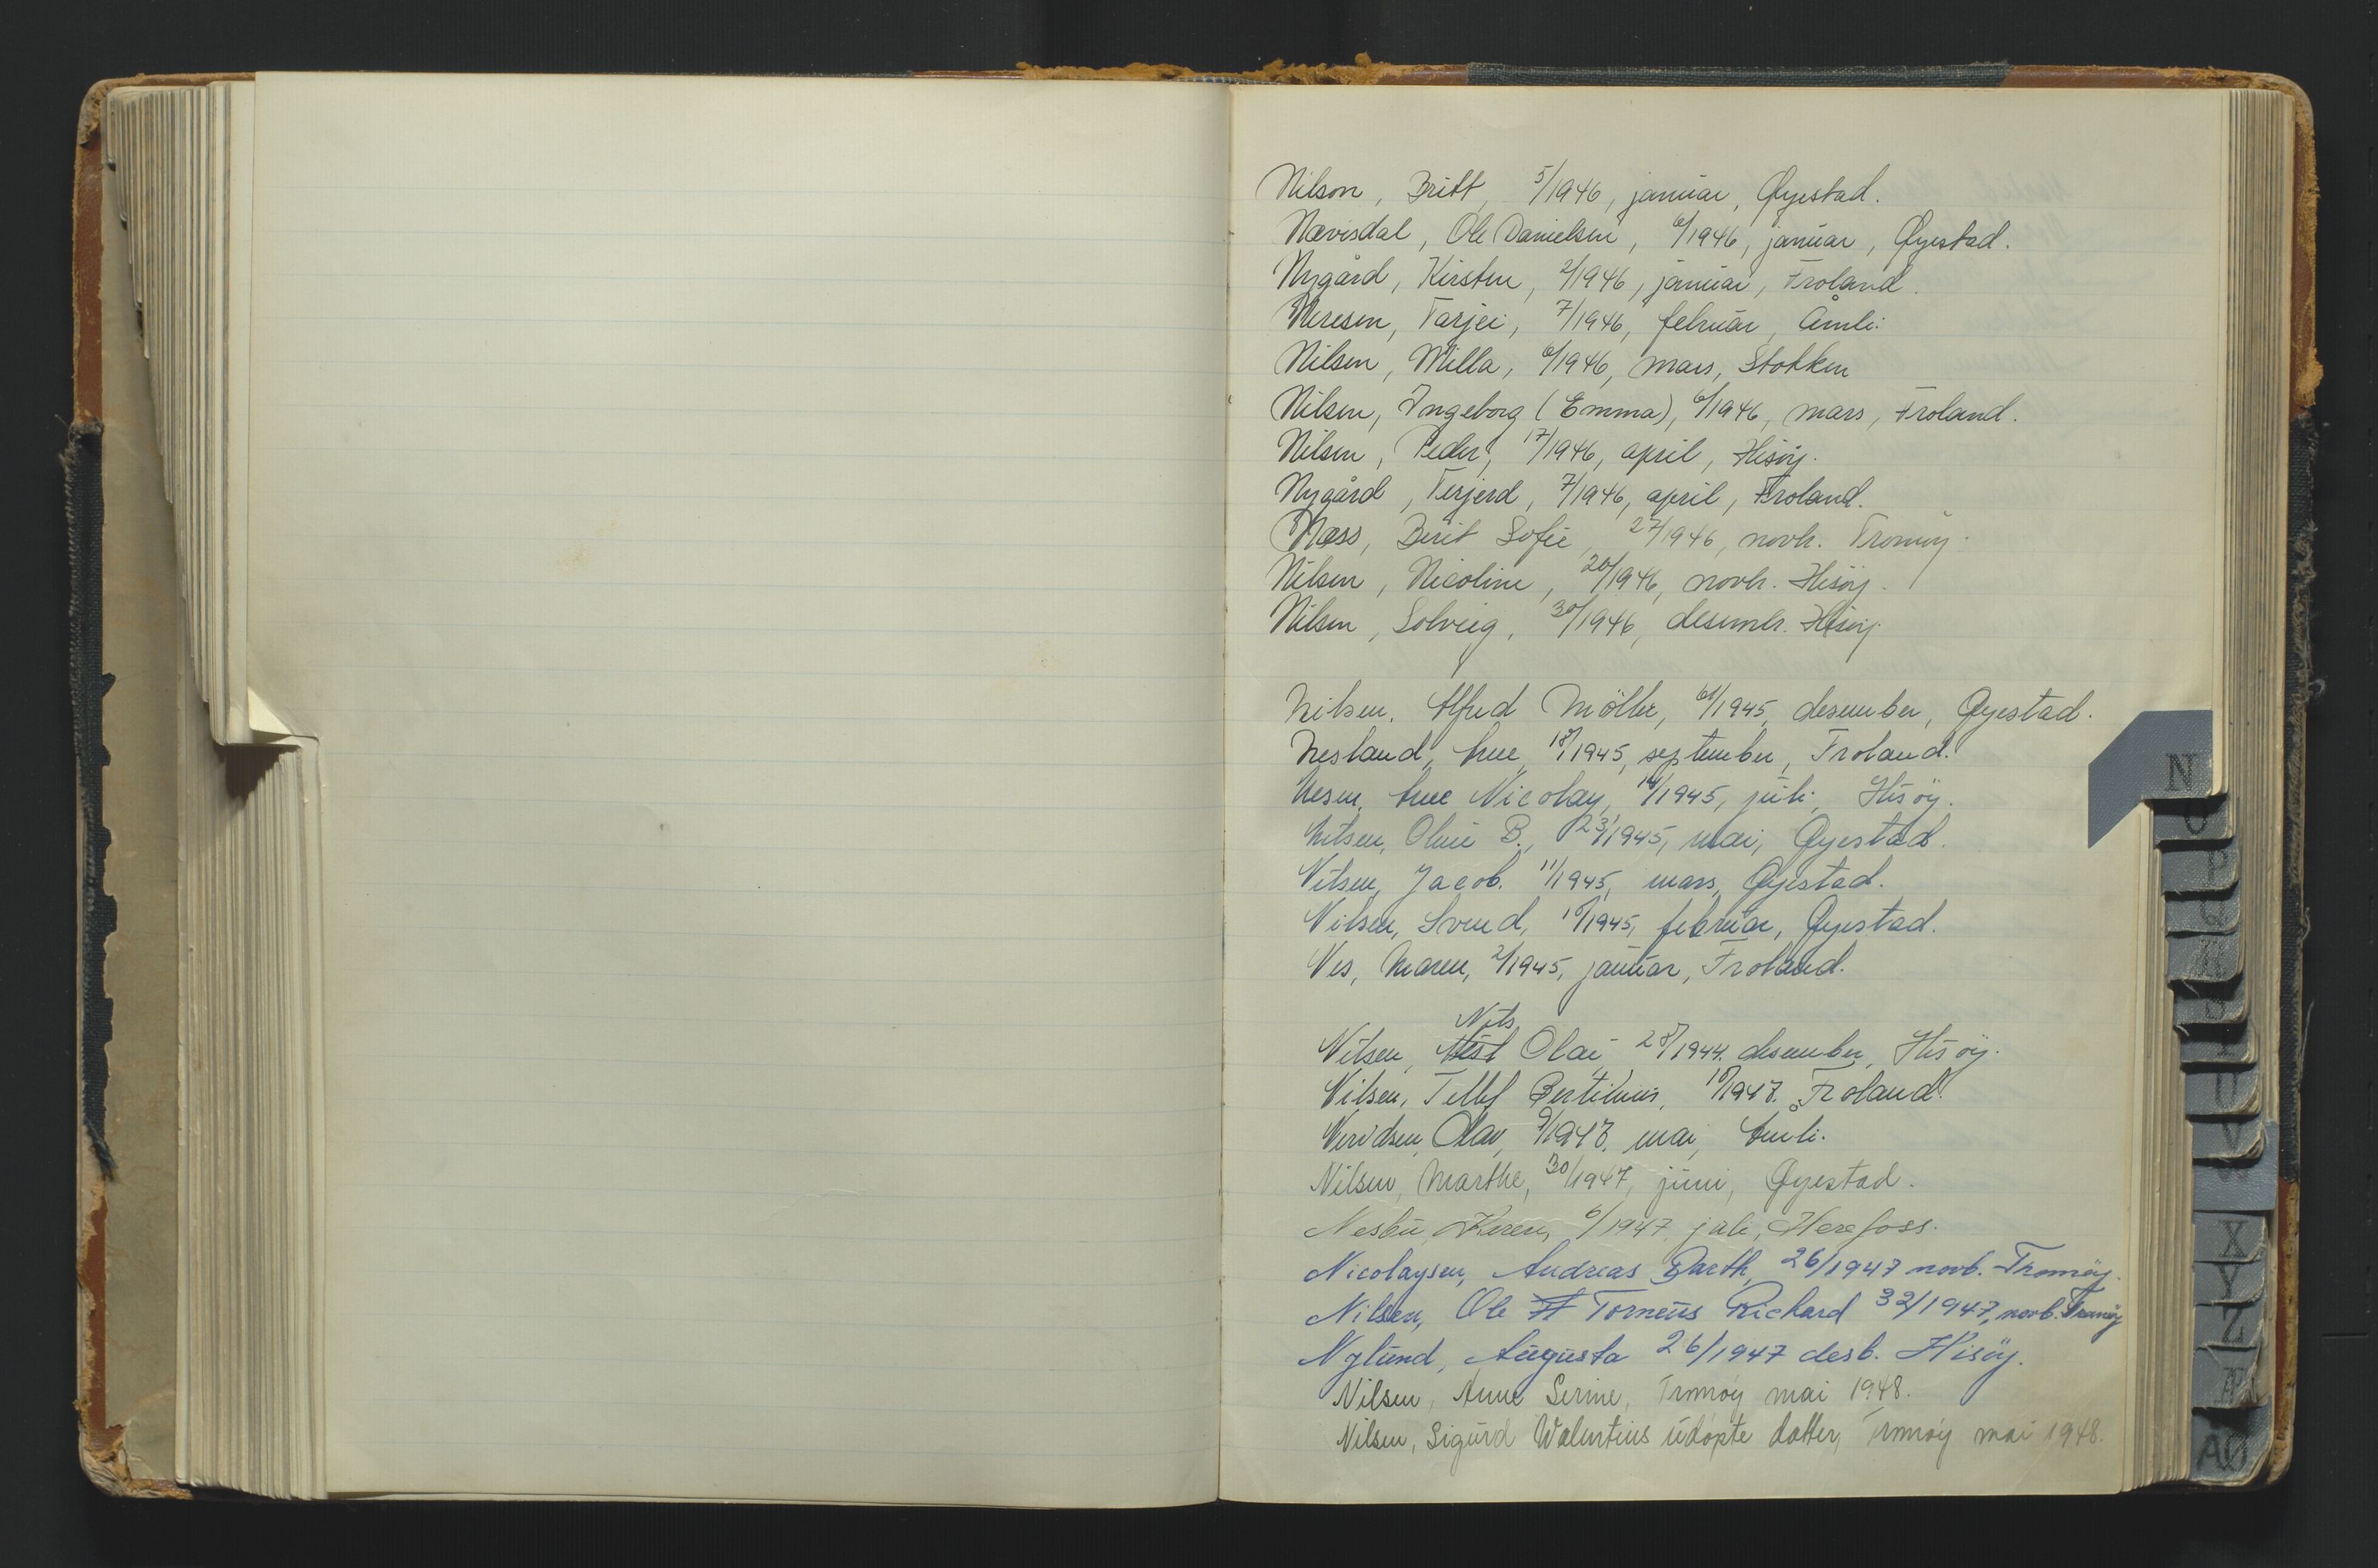 Nilson, Britt, 5/1946, januar, Øyestad.
Nævisdal, Ole Danielsen, 6/1946, januar, Øyestad.
Nygård, Kirsten, 2/1946, januar, Froland.
Neresen, Tarjei, 7/1946, februar, Åmli.
Nilsen, Milla, 6/1946, mars, Stokken
Nilsen, Ingeborg (Emma), 6/1946, mars, Froland.
Nilsen, Peder, 17/1946, april, Hisøy.
Nygård, Terjerd, 7/1946, april, Froland.
Næss, Berit Sofie, 27/1946, novbr. Tromøy.
Nilsen, Nicoline, 20/1946, novbr. Hisöy.
Nilsen, Solveig, 30/1946, desembr. Hisøy
Nilsen, Alfred Möller, 61/1945, desember, Øyestad.
Nesland, Anne, 18/1945, september, Froland.
Nesen, Anne Nicolay, 14/1945, juli, Hisöy.
Nilsen, Oline B., 23/1945, mai, Øyestad.
Nilsen, Jacob. 11/1945, mars, Øyestad.
Nilsen, Svend, 10/1945, februar, Øyestad.
Nes, Maren, 2/1945, januar, Froland.
Nils
Nilsen, Olai 28/1944. desember, Hisöy.
Nilsen, Tellef Bertinius, 10/1947. Froland.
Olav, 9/1947. mai, Åmli.
Nilsen, Marthe, 30/1947, juni, Øyestad.
Nesbu, Karen, 6/1947, juli, Herefoss.
Nicolaysen, Andreas Barth, 26/1947 novb. Tromöy.
Nilsen, Ole Torneus Rickard 32/1947, novb. Tromöy
Nylund, Augusta 26/1947 desb. Hisöy.
Nilsen, Anne Serine, Tromöy mai 1948.
Nilsen, Sigurd Walentius udöpte datter, Tromöy mai 1948.
N
O
P
Q
R
S
T
U
V
W
X
Y
Z
Æ
AØ